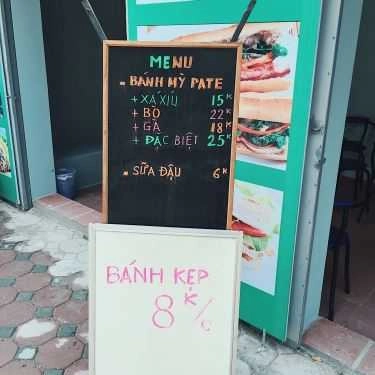 MENU
BÁNH MỲ PATE
+ XÁ XÍU 15K
+ BÒ 22K
+ GÀ 18K
+ ĐẶC BIỆT 25K
SỮA ĐẬU 6K
BÁNH KẸP
8K/C